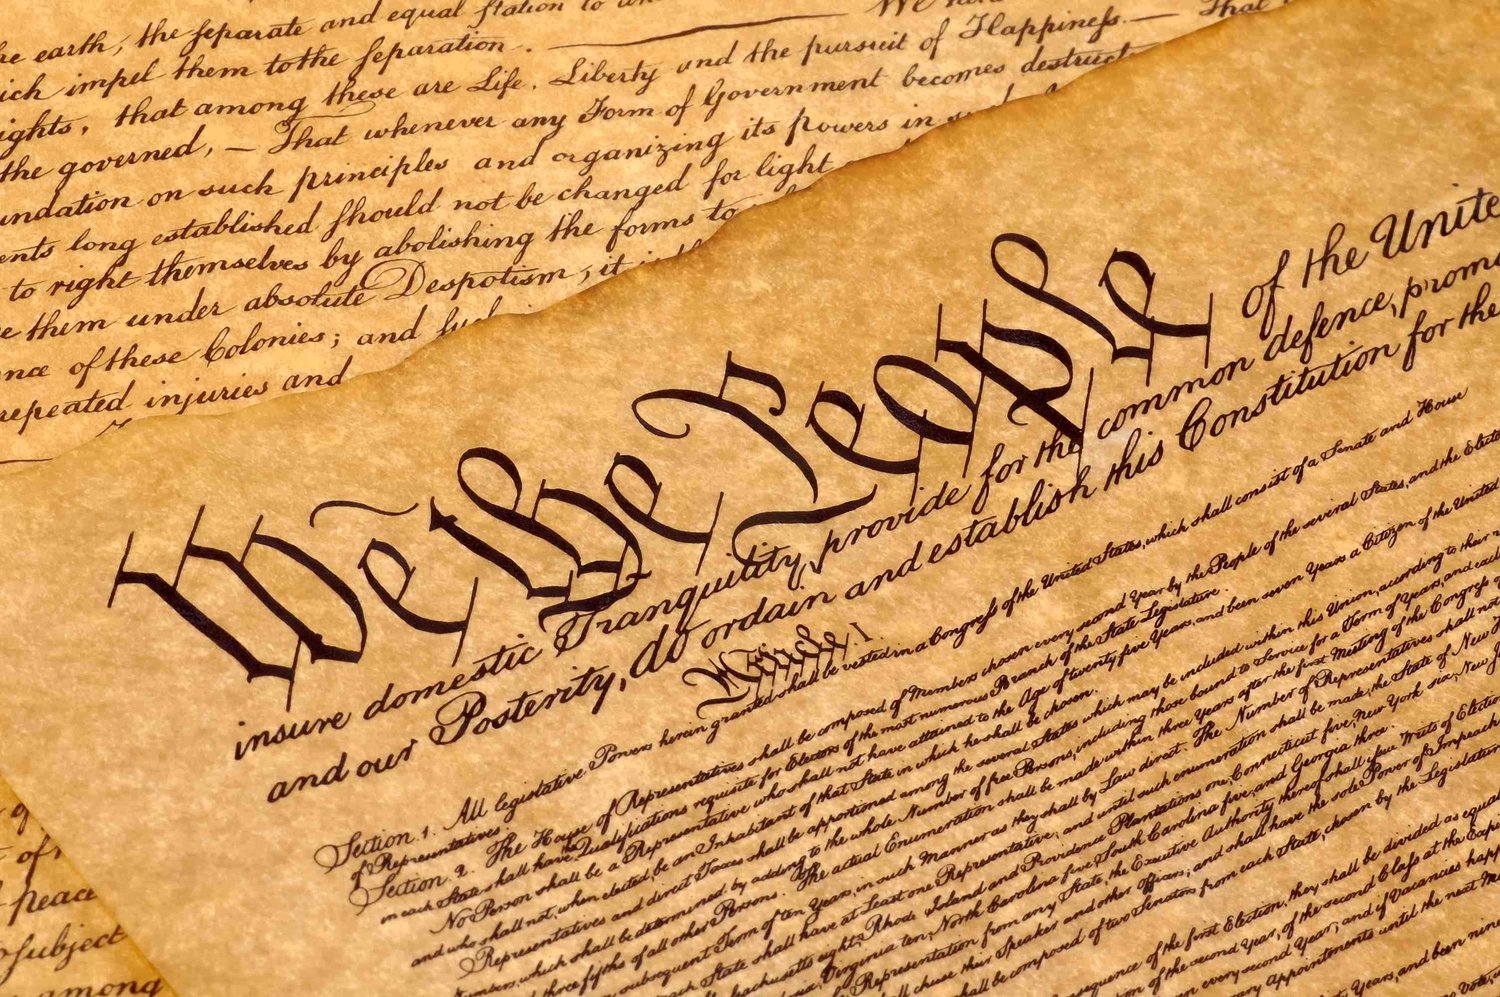 the earth, the separate and equal station to
which impel them to the separation. — We
ights, that among these are Life, Liberty and the pursuit of Happiness. — That
the governed, — That whenever any Form of Government becomes destruct
undation on such principles and organizing its powers in
ents long established should not be changed for light
to right themselves by abolishing the forms to
e them under absolute Despotism, it
nce of these Colonies; and such
repeated injuries and
We the People of the Unite
insure domestic Tranquility, provide for the common defence, promo
and our Posterity, do ordain and establish this Constitution for the
Article. I.
Section. 1. All legislative Powers herein granted shall be vested in a Congress of the United States, which shall consist of a Senate and House
of Representatives.
Section. 2. The House of Representatives shall be composed of Members chosen every second Year by the People of the several States, and the Elect
in each State shall have Qualifications requisite for Electors of the most numerous Branch of the State Legislature.
No Person shall be a Representative who shall not have attained to the Age of twenty five Years, and been seven Years a Citizen of the United
and who shall not, when elected, be an Inhabitant of that State in which he shall be chosen.
Representatives and direct Taxes shall be apportioned among the several States which may be included within this Union, according to their
Numbers, which shall be determined by adding to the whole Number of free Persons, including those bound to Service for a Term of Years, and
three fifths of all other Persons. The actual Enumeration shall be made within three Years after the first Meeting of the Congress of
subsequent Term of ten Years, in such Manner as they shall by Law direct. The Number of Representatives shall not
each State shall have at Least one Representative; and until such enumeration shall be made, the State of New
eight, Rhode Island and Providence Plantations one, Connecticut five, New York six, New
Virginia ten, North Carolina five, South Carolina five, and Georgia three.
Representation from any State, the Executive Authority thereof shall issue Writs of Election
shall chuse their Speaker and other Officers; and shall have the sole Power of Impeach
shall be composed of two Senators from each State, chosen by the Legislature
sequence of the first Election, they shall be divided as equal
of the second Year, of the second Class at the Expi
every second Year; and if Vacancies happ
Appointments until the next M
Years, and been nine
of
peace
subject
among